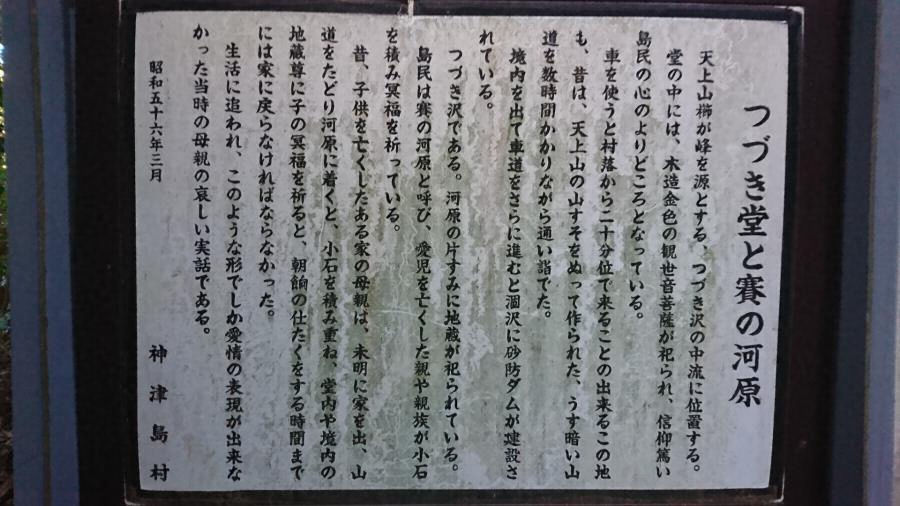 つづき堂と賽の河原
天上山櫛が峰を源とする、つづき沢の中流に位置する。
堂の中には、木造金色の観世音菩薩が祀られ、信仰篤い
島民の心のよりどころとなっている。
車を使うと村落から二十分位で来ることの出来るこの地
も、昔は、天上山の山すそをぬって作られた、うす暗い山
道を数時間かかりながら通い詣でた。
境内を出て車道をさらに進むと涸沢に砂防ダムが建設さ
れている。
つづき沢である。河原の片すみに地蔵が祀られている。
島民は賽の河原と呼び、愛児を亡くした親や親族が小石
を積み冥福を祈っている。
昔、子供を亡くしたある家の母親は、未明に家を出、山
道をたどり河原に着くと、小石を積み重ね、堂内や境内の
地蔵尊に子の冥福を祈ると、朝餉の仕たくをする時間まで
には家に戻らなければならなかった。
生活に追われ、このような形でしか愛情の表現が出来な
かった当時の母親の哀しい実話である。
昭和五十六年三月
神津島村